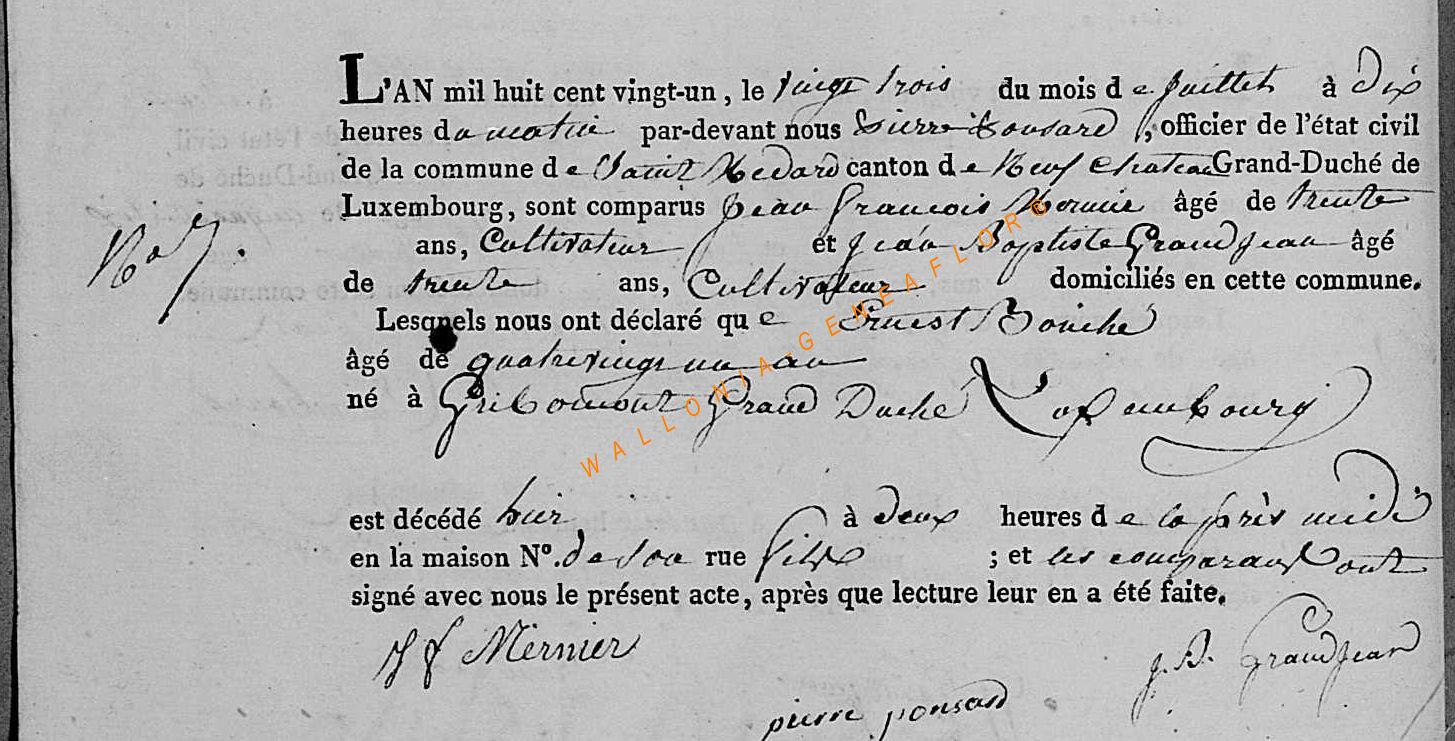 L'AN mil huit cent vingt-un, le vingt trois du mois de juillet à dix
heures du matin par-devant nous pierre ponsard, officier de l'état civil
de la commune de Saint Medard canton de Neuf Chateau Grand-Duché de
Luxembourg, sont comparus jean francois Mernie âgé de trente
No 7.
ans, Cultivateur et jean Baptiste Grandjean âgé
de trente ans, Cultivateur domiciliés en cette commune.
Lesquels nous ont déclaré que Ernest Bouché
âgé de quatrevingt un an
né à Gribomont Grand Duché Luxembourg
WALLONIA-GENEAFLORE
est décédé hier à deux heures de la près midi
en la maison N°. de son rue fils ; et les comparans ont
signé avec nous le présent acte, après que lecture leur en a été faite.
J f Mernier
j. B. Grandjean
pierre ponsard